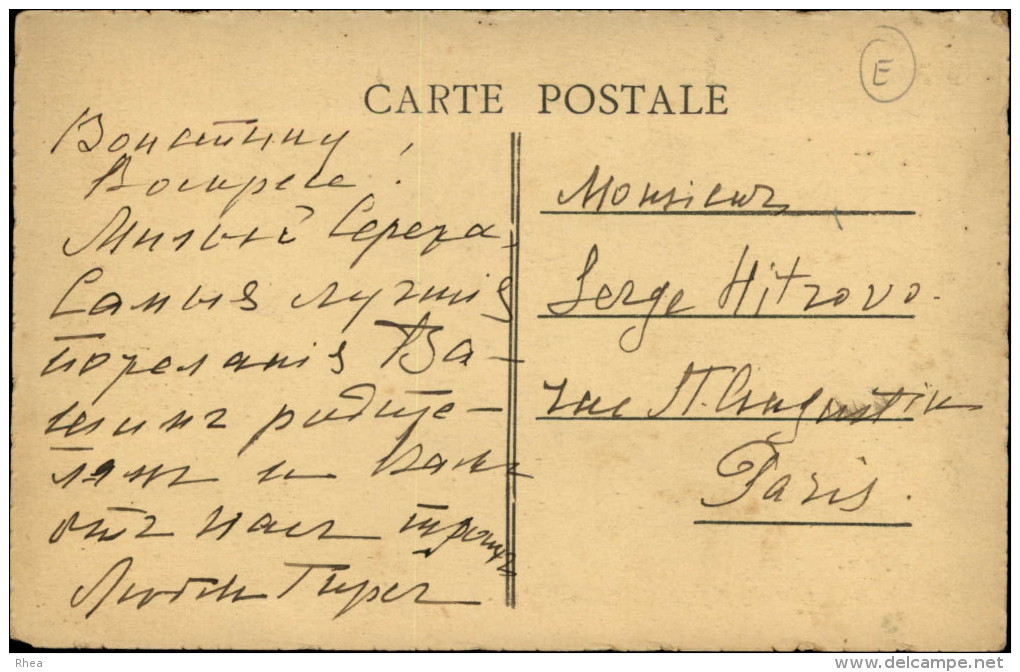 E
CARTE POSTALE
Воистину
Воскресе!
Милый Сережа,
Самыя лучшія
пожеланія Ва-
шимъ родите-
лямъ и Вамъ
отъ насъ троихъ
Monsieur
Serge Hitrovo.
rue St. Augustin
Paris.
Rhea
delcampe.net